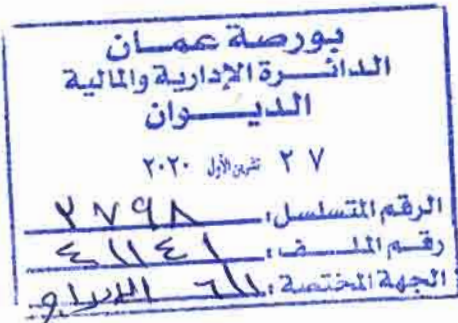 بورصة عمان
الدائرة الإدارية والمالية
الديوان
٢٧ تشرين الأول ٢٠٢٠
الرقم المتسلسل: ٣٧٩٨
رقم الملف: ٤١١٤١
الجهة المختصة: